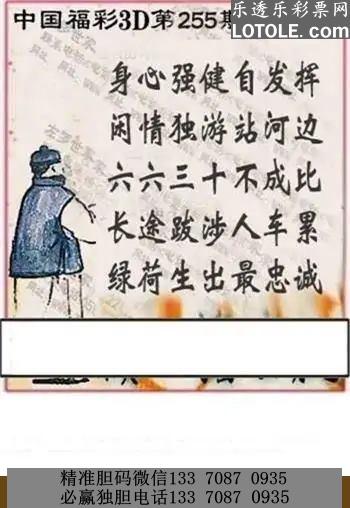 中国福彩3D第255期
乐透乐彩票网
LOTOLE.com
身心强健自发挥
闲情独游站河边
六六三十不成比
长途跋涉人车累
绿荷生出最忠诚
精准胆码微信133 7087 0935
必赢独胆电话133 7087 0935